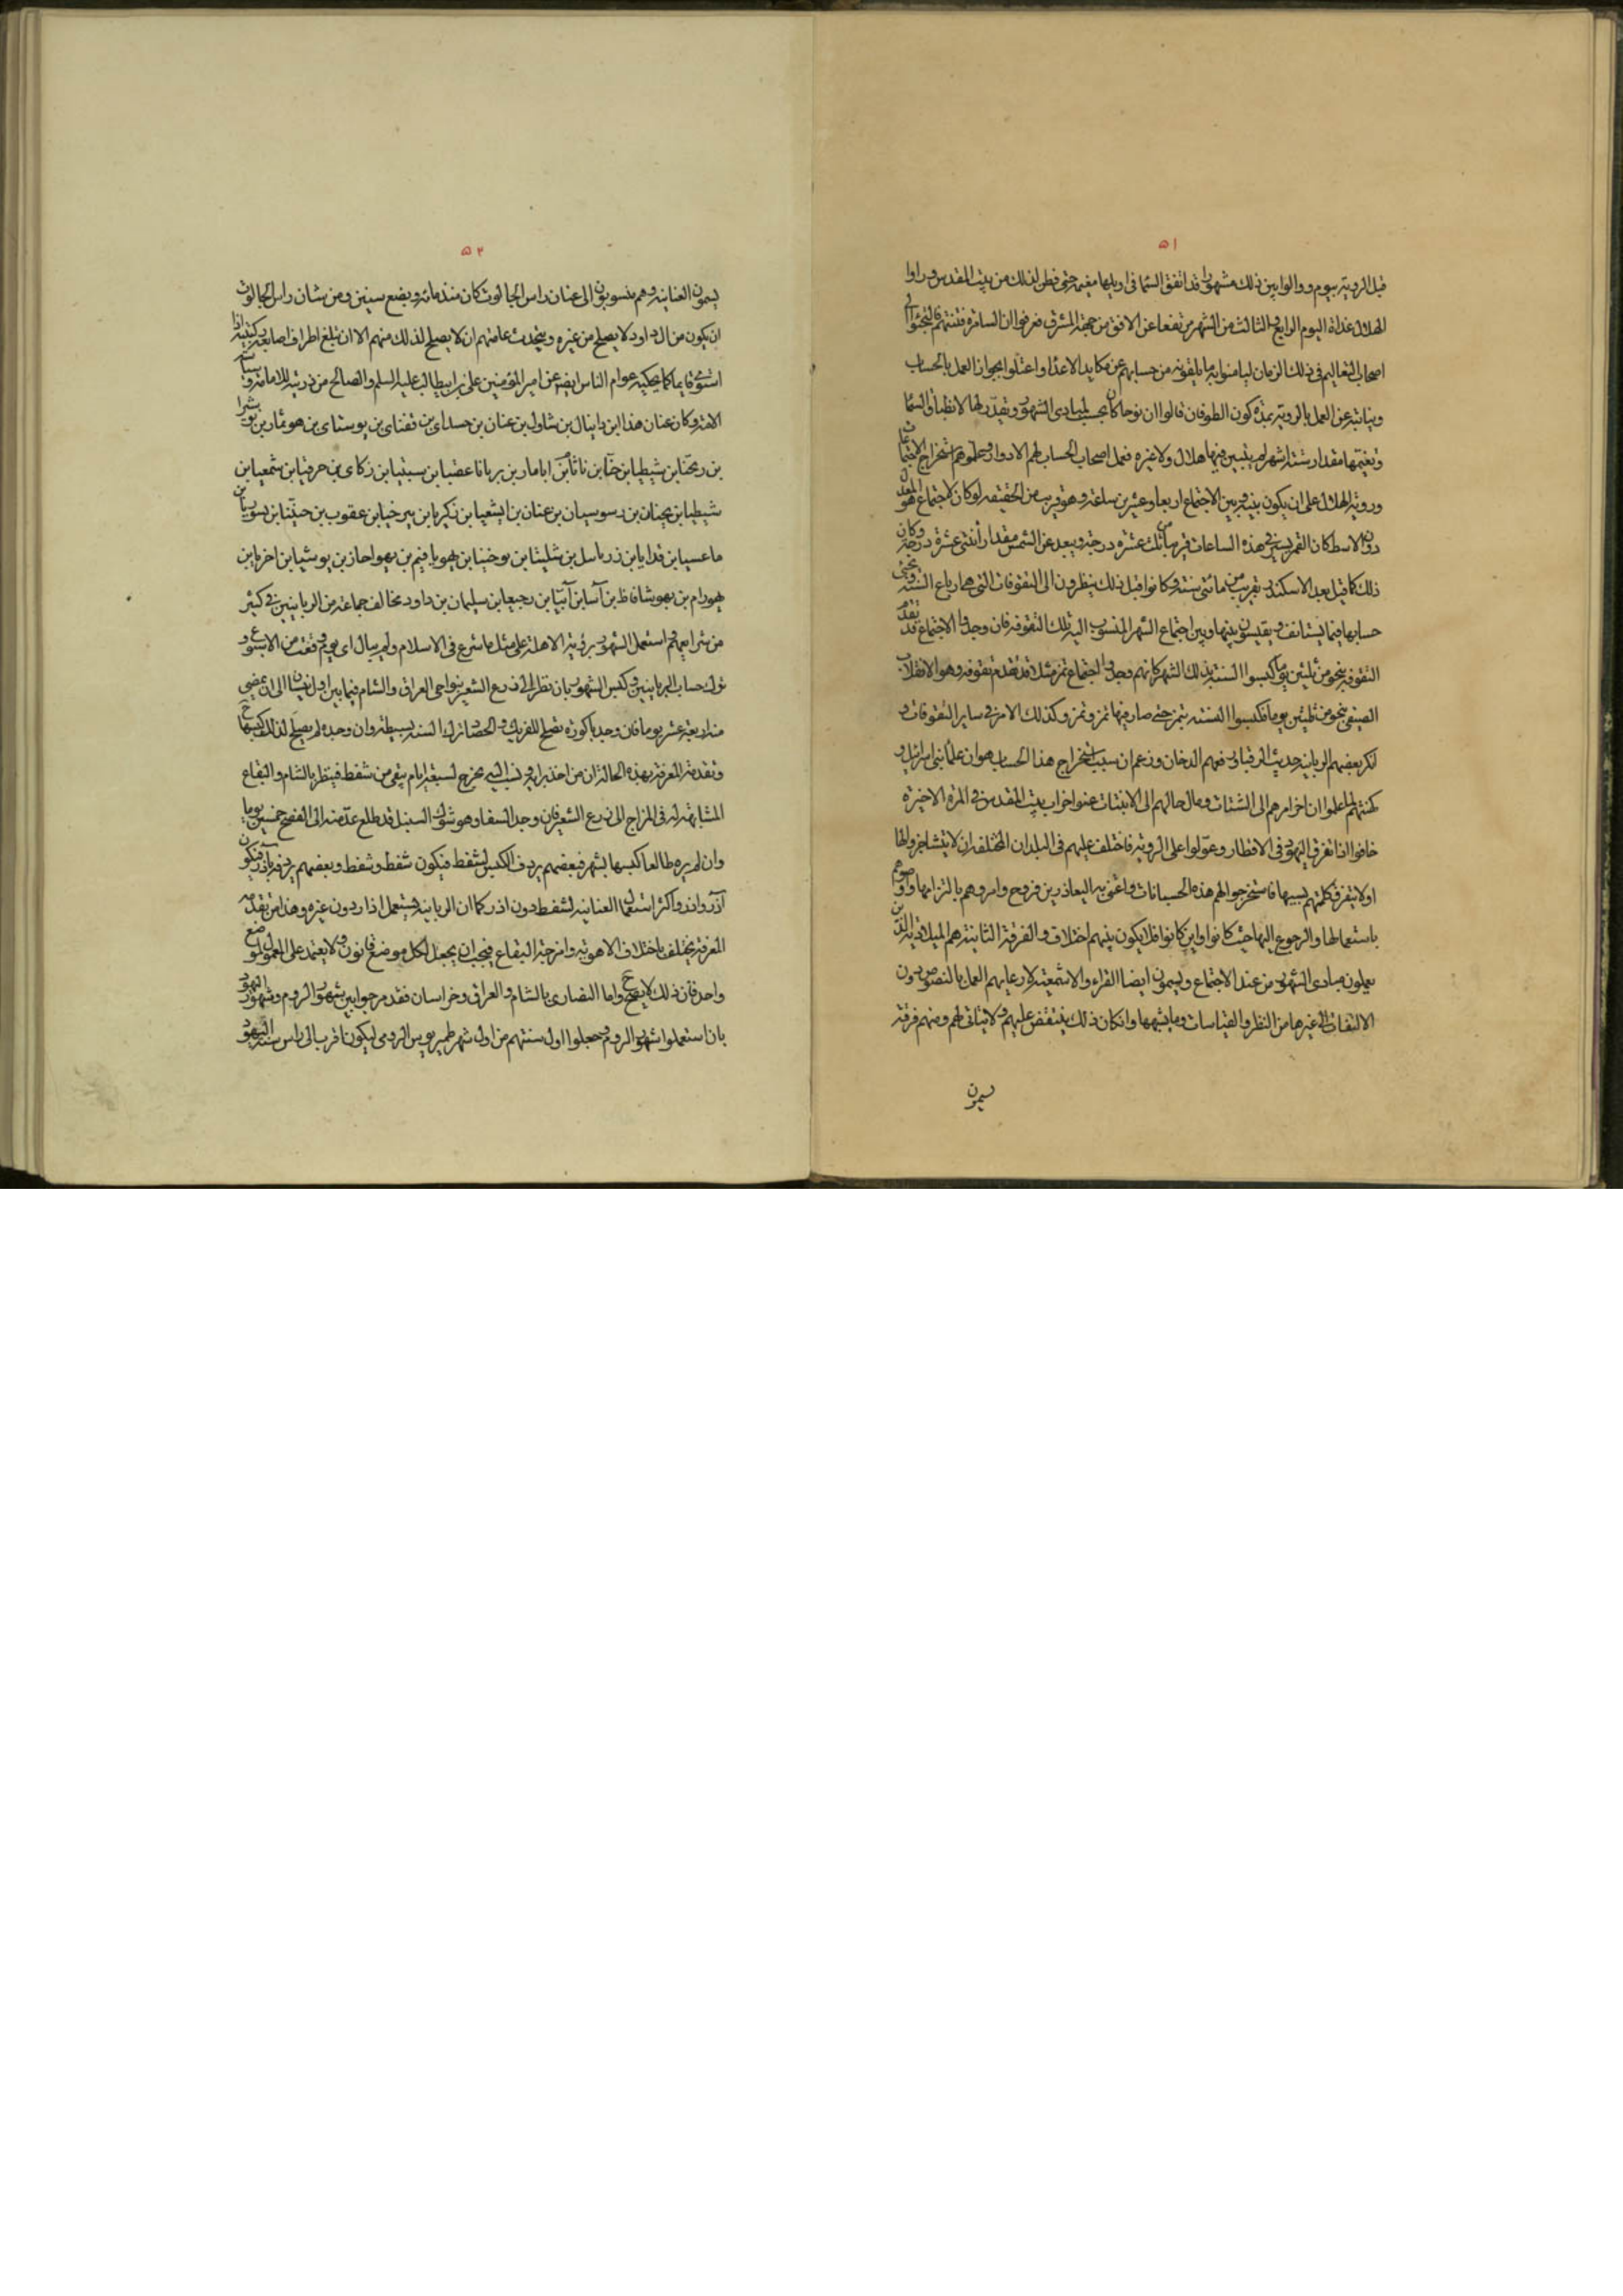 ۵۱
قبل الرؤية بيوم ووالوا بين ذلك مشهورا قد اتفق السما فى اوايلها مغيمة حتى فطن لذلك من ببيت المقدس وراوا
الهلال غداة اليوم الرابع او الثالث من الشهر مرتفعا عن الافق من جهة المشرق فعرفوا ان السامرة فتنتهم فالتجئوا الى
اصحاب التعاليم فى ذلك الزمان ليامنوا به ما يلقونه من حسابهم عن مكايد الاعدا واعتلوا بجواز العمل بالحساب
ونيابته عن العمل بالرؤية بمدة كون الطوفان قالوا ان نوحا كان يحسب لمبادى الشهور ويقدر لها لانطباق السما
وتغيمها مقدار ستة اشهر لم يتبين فيها هلال ولا غيره فعمل اصحاب الحساب لهم الادوار وعلموهم استخراج الاجتماعات
ورؤية الهلال على ان يكون بينه وبين الاجتماع اربعا وعشرين ساعة وهو قريب من الحقيقة لو كان الاجتماع هو المعدل
دون الاوسط كان القمر يسير فى هذه الساعات قريبا من ثلث عشرة درجة ويبعد عن الشمس مقدار اثنتى عشرة درجة وكان
ذلك كما قيل بعد الاسكندر بقريب من مائتى سنة وكانوا قبل ذلك ينظرون الى التقوفات التى هى ارباع السنة ويجئ
حسابها فيما يستانف ويقيسون بينها وبين اجتماع الشهر المنسوب اليه تلك التقوفة فان وجدوا الاجتماع قد تقدم
التقوفة بنحو من ثلثين يوما كبسوا السنة بذلك الشهر كانهم وجدوا اجتماع تمز مثلا قد تقدم تقوفته وهو الانقلاب
الصيفى بنحو من ثلثين يوما فكبسوا السنة بتمز حتى صار فيها تمز وتمز وكذلك الامر فى ساير التقوفات و
انكر بعضهم الربانية حديث الرقبا ورفعهم الدخان وزعم ان سبب استخراج هذا الحساب هو ان علما بنى اسرائيل و
كهنتهم لما علموا ان اخرامرهم الى الشتات ومال حالهم الى الانبتات عنوا خراب بيت المقدس فى المرة الاخيرة
خافوا اذا تفرق اليهود فى الاقطار وعولوا على الرؤية فاختلف عليهم فى البلدان المختلفة ان لا يتشاجروا لها
او لا يتفرق كلمتهم بسببها فاستخرجوا لهم هذه الحسبانات واعتنى بها اليعاذر بن فروح وامروهم بالتزامها واوصوهم
باستعمالها والرجوع اليها حيث كانوا واين كانوا فلا يكون بينهم اختلاف والفرقة الثانية هم الميلادية الذين
يعملون مبادى الشهور من عند الاجتماع ويسمون ايضا القراء والاشمعية لادعايهم العمل بالنصوص دون
الالتفات الى غيرها من النظر والقياسات وما يشبهها وان كان ذلك ينتقض عليهم ولا يتاتى لهم ومنهم فرقة
يسمون
۵۲
يسمون العنانية وهم منسوبون الى عنان راس الجالوت كان منذ مائة وبضع سنين ومن شان راس الجالوت
ان يكون من ال داود لا يصلح من غيره ويتحدث عامتهم ان لا يصلح لذلك منهم الا ان تبلغ اطراف اصابعه ركبتيه اذا
استوى قايما كما يحكيه عوام الناس ايضا عن امير المؤمنين على بن ابيطالب عليه السلم والصالح من ذريته للامامة وسياسة
الامة وكان عنان هذا ابن دانيال بن شاول بن عنان بن حسداى بن قفناى بن بوستاى بن هومار بن
بن ابن شيطيا ابن ناثان بن ابامارى بن بن ابن زكاى بن ابن شمعيا بن
شيطيا بن يحنان بن رسوسيان بن عنان بن ايشعيا بن زكريا بن بيرخيا بن عقوب بن ابن
ماعسيا بن فدايا بن زربابيل بن شليثا بن يوخنيا بن يهوياقيم بن يهواحاز بن يوشيا بن اخزيا بن
يهورام بن يهوشافاظ بن آسا بن آبيا بن رحبعا بن سليمان بن داود مخالف جماعة من الربانيين فى كثير
من شرايعهم واستعمل الشهور برؤية الاهلة على مثل ما شرع فى الاسلام ولم يبال اى يوم وقعت من الاسبوع و
ترك حساب الربانيين وكبس الشهور بان نظر الى زرع الشعير بنواحى العراق والشام فيما بين اول نيسن الى ان يمضى
منه اربعة عشر يوما فان وجد باكورة تصلح للفريك والحصاد ترك السنة بسيطة وان وجده لم يصلح لذلك كبسها
وتقدمة المعرفة بهذه الحالة ان من اخذ برايه يخرج لسبعة ايام يبقى من شفط فينظر بالشام والبقاع
المشابهة له فى المزاج الى زرع الشعير فان وجد السفا وهو شوك السنبل قد طلع عد منه الى الفصح خمسين يوما
وان لم يره طالعا كبسها بشهر فبعضهم يردف الكبس لشفط فيكون شفط وشفط وبعضهم يردفه باذر فيكون
آذر واذر واكثر استعمال العنانية لشفط دون اذر كما ان الربانية يستعمل اذار دون غيره وهذا من تقدمة
المعرفة يختلف باختلاف الاهوية وامزجة البقاع فيجب ان يجعل لكل موضع قانون ولا يعتمد على المعمول لموضع
واحد فان ذلك لا يصح واما النصارى بالشام والعراق وخراسان فقد مزجوا بين شهور الروم وشهور اليهود
بان استعملوا شهور الروم وجعلوا اول سنتهم من اول شهر طمبريوس الرومى ليكون اقرب الى راس سنة اليهود